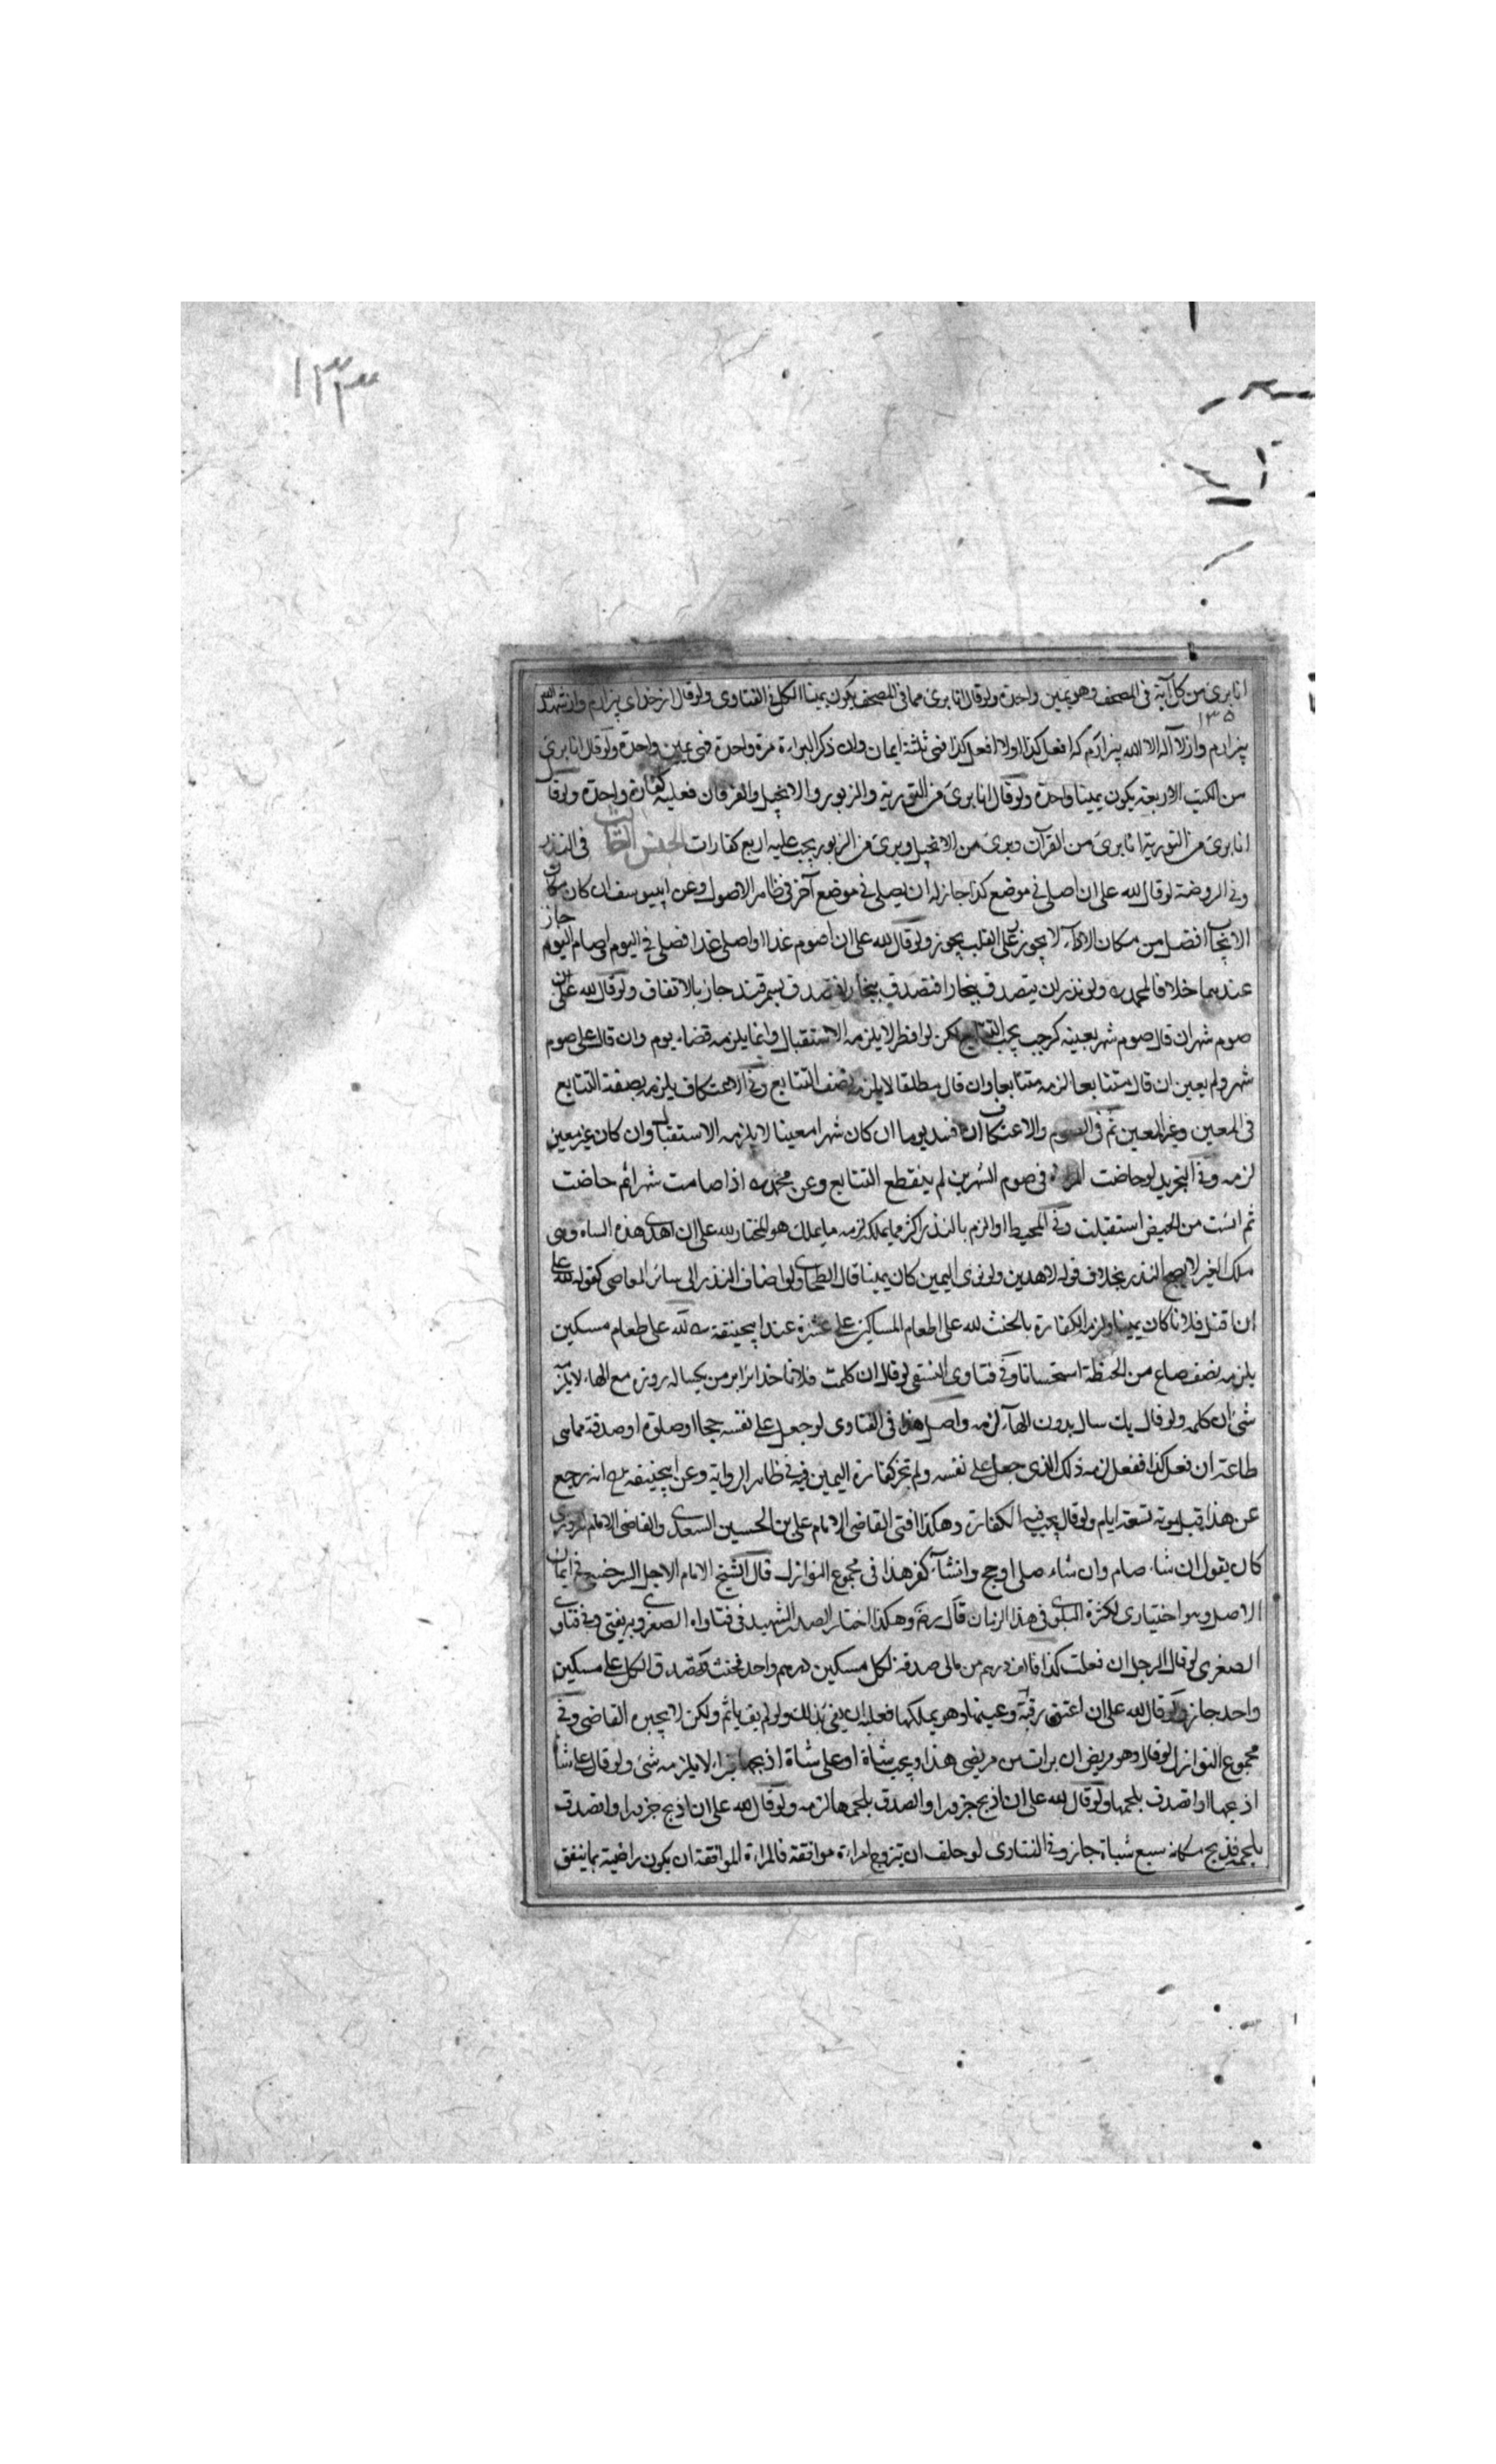 ١٣٣
انا برئ من كل آية فى المصحف وهو يمين واحدة ولو قال انا برئ مما فى المصحف يكون يمينا الكل فى الفتاوى ولو قال از خداى بيزارم واز شهد الله
١٣٥
بيزارم واز لا اله الا الله بيزارم كه افعل كذا اولا افعل كذا فهى ثلثة ايمان وان ذكر البراءة مرة واحدة فهى يمين واحدة ولو قال انا برئ
من الكتب الاربعة يكون يمينا واحدة ولو قال انا برئ من التورية والزبور والانجيل والفرقان فعليه كفارة واحدة ولو قال
انا برئ من التورية انا برئ من القرآن وبرئ من الانجيل وبرئ من الزبور يجب عليه اربع كفارات الجنس الثالث فى النذر
وفى الروضة لو قال لله على ان اصلى فى موضع كذا جاز له ان يصلى فى موضع آخر فى ظاهر الاصول وعن ابى يوسف ان كان مكان
الايجاب افضل من مكان الاداء لا يجوز وعلى القلب يجوز ولو قال لله على ان اصوم غدا او اصلى غدا فصلى فى اليوم او صام اليوم جاز
عندهما خلافا لمحمد ره ولو نذر ان يتصدق ببخارا فتصدق بسمرقند جاز بالاتفاق ولو قال لله على ان
صوم شهر ان قال صوم شهر بعينه كرجب يجب التتابع لكن لو افطر لا يلزمه الاستقبال وانما يلزمه قضاء يوم وان قال على صوم
شهر ولم يعين ان قال متتابعا لزمه متتابعا وان قال مطلقا لا يلزمه بصفة التتابع وفى الاعتكاف يلزمه بصفة التتابع
فى المعين وغير المعين ثم فى الصوم والاعتكاف ان افسد يوما ان كان شهرا معينا لا يلزمه الاستقبال وان كان غير معين
لزمه وفى التجريد لو حاضت المراة فى صوم الشهرين لم ينقطع التتابع وعن محمد ره اذا صامت شهرا ثم حاضت
ثم ايست من الحيض استقبلت وفى المحيط لو الزم بالنذر اكثر مما يملكه لزمه ما يملك هو المختار لله على ان اهدى هذه الشاه وهى
ملك الغير لا يصح النذر بخلاف قوله لاهدين ولو نوى اليمين كان يمينا قال الطحاوى لو اضاف النذر الى سائر المعاصى كقوله لله على
ان اقتل فلانا كان يمينا ولزمه الكفارة بالحنث لله على اطعام المساكين على عشرة عند ابى حنيفة ره لله على طعام مسكين
يلزمه نصف صاع من الحنطة استحسانا وفى فتاوى النسفى لو قال ان كلمت فلانا خدايرا بر من يكساله روزه مع الهاء لا يلزمه
شئ ان كلمه ولو قال يك سال بدون الهاء لزمه واصل هذا فى الفتاوى لو جعل على نفسه حجا او صلوة او صدقة مما هى
طاعة ان فعل كذا ففعل لزمه ذلك الذى جعل على نفسه ولم تجز كفارة اليمين فيه فى ظاهر الرواية وعن ابى حنيفة ره انه رجع
عن هذا قبل موته بسبعة ايام ولو قال يجب فيه الكفارة وهكذا افتى القاضى الامام على بن الحسين السغدى والقاضى الامام
كان يقول ان شاء صام وان شاء صلى او حج وان شاء كفر هذا فى مجموع النوازل قال الشيخ الامام الاجل السرخسى فى ايمان
الاصل وهو اختيارى لكثرة البلوى فى هذا الزمان قال رضه وهكذا اختار الصدر الشهيد فى فتاواه الصغرى وبه يفتى وفى فتاوى
الصغرى لو قال الرجل ان فعلت كذا فالف درهم من مالى صدقة لكل مسكين درهم واحد فحنث وتصدق بالكل على مسكين
واحد جاز ولو قال لله على ان اعتق رقبة وعينها وهو يملكها فعليه ان يفى بذلك ولو لم يف ياثم ولكن لا يجبره القاضى وفى
مجموع النوازل لو قال وهو مريض ان برات من مرضى هذا ذبحت شاة او على شاة اذبحها فبرا لا يلزمه شئ ولو قال على شاة
اذبحها واتصدق بلحمها ولو قال لله على ان اذبح جزورا واتصدق بلحمها لزمه ولو قال لله على ان اذبح جزورا واتصدق
بلحمه فذبح مكانه سبع شياة جاز وفى الفتاوى لو حلف ان يتزوج امراة موافقة فالمراة الموافقة ان يكون راضية بما ينفق